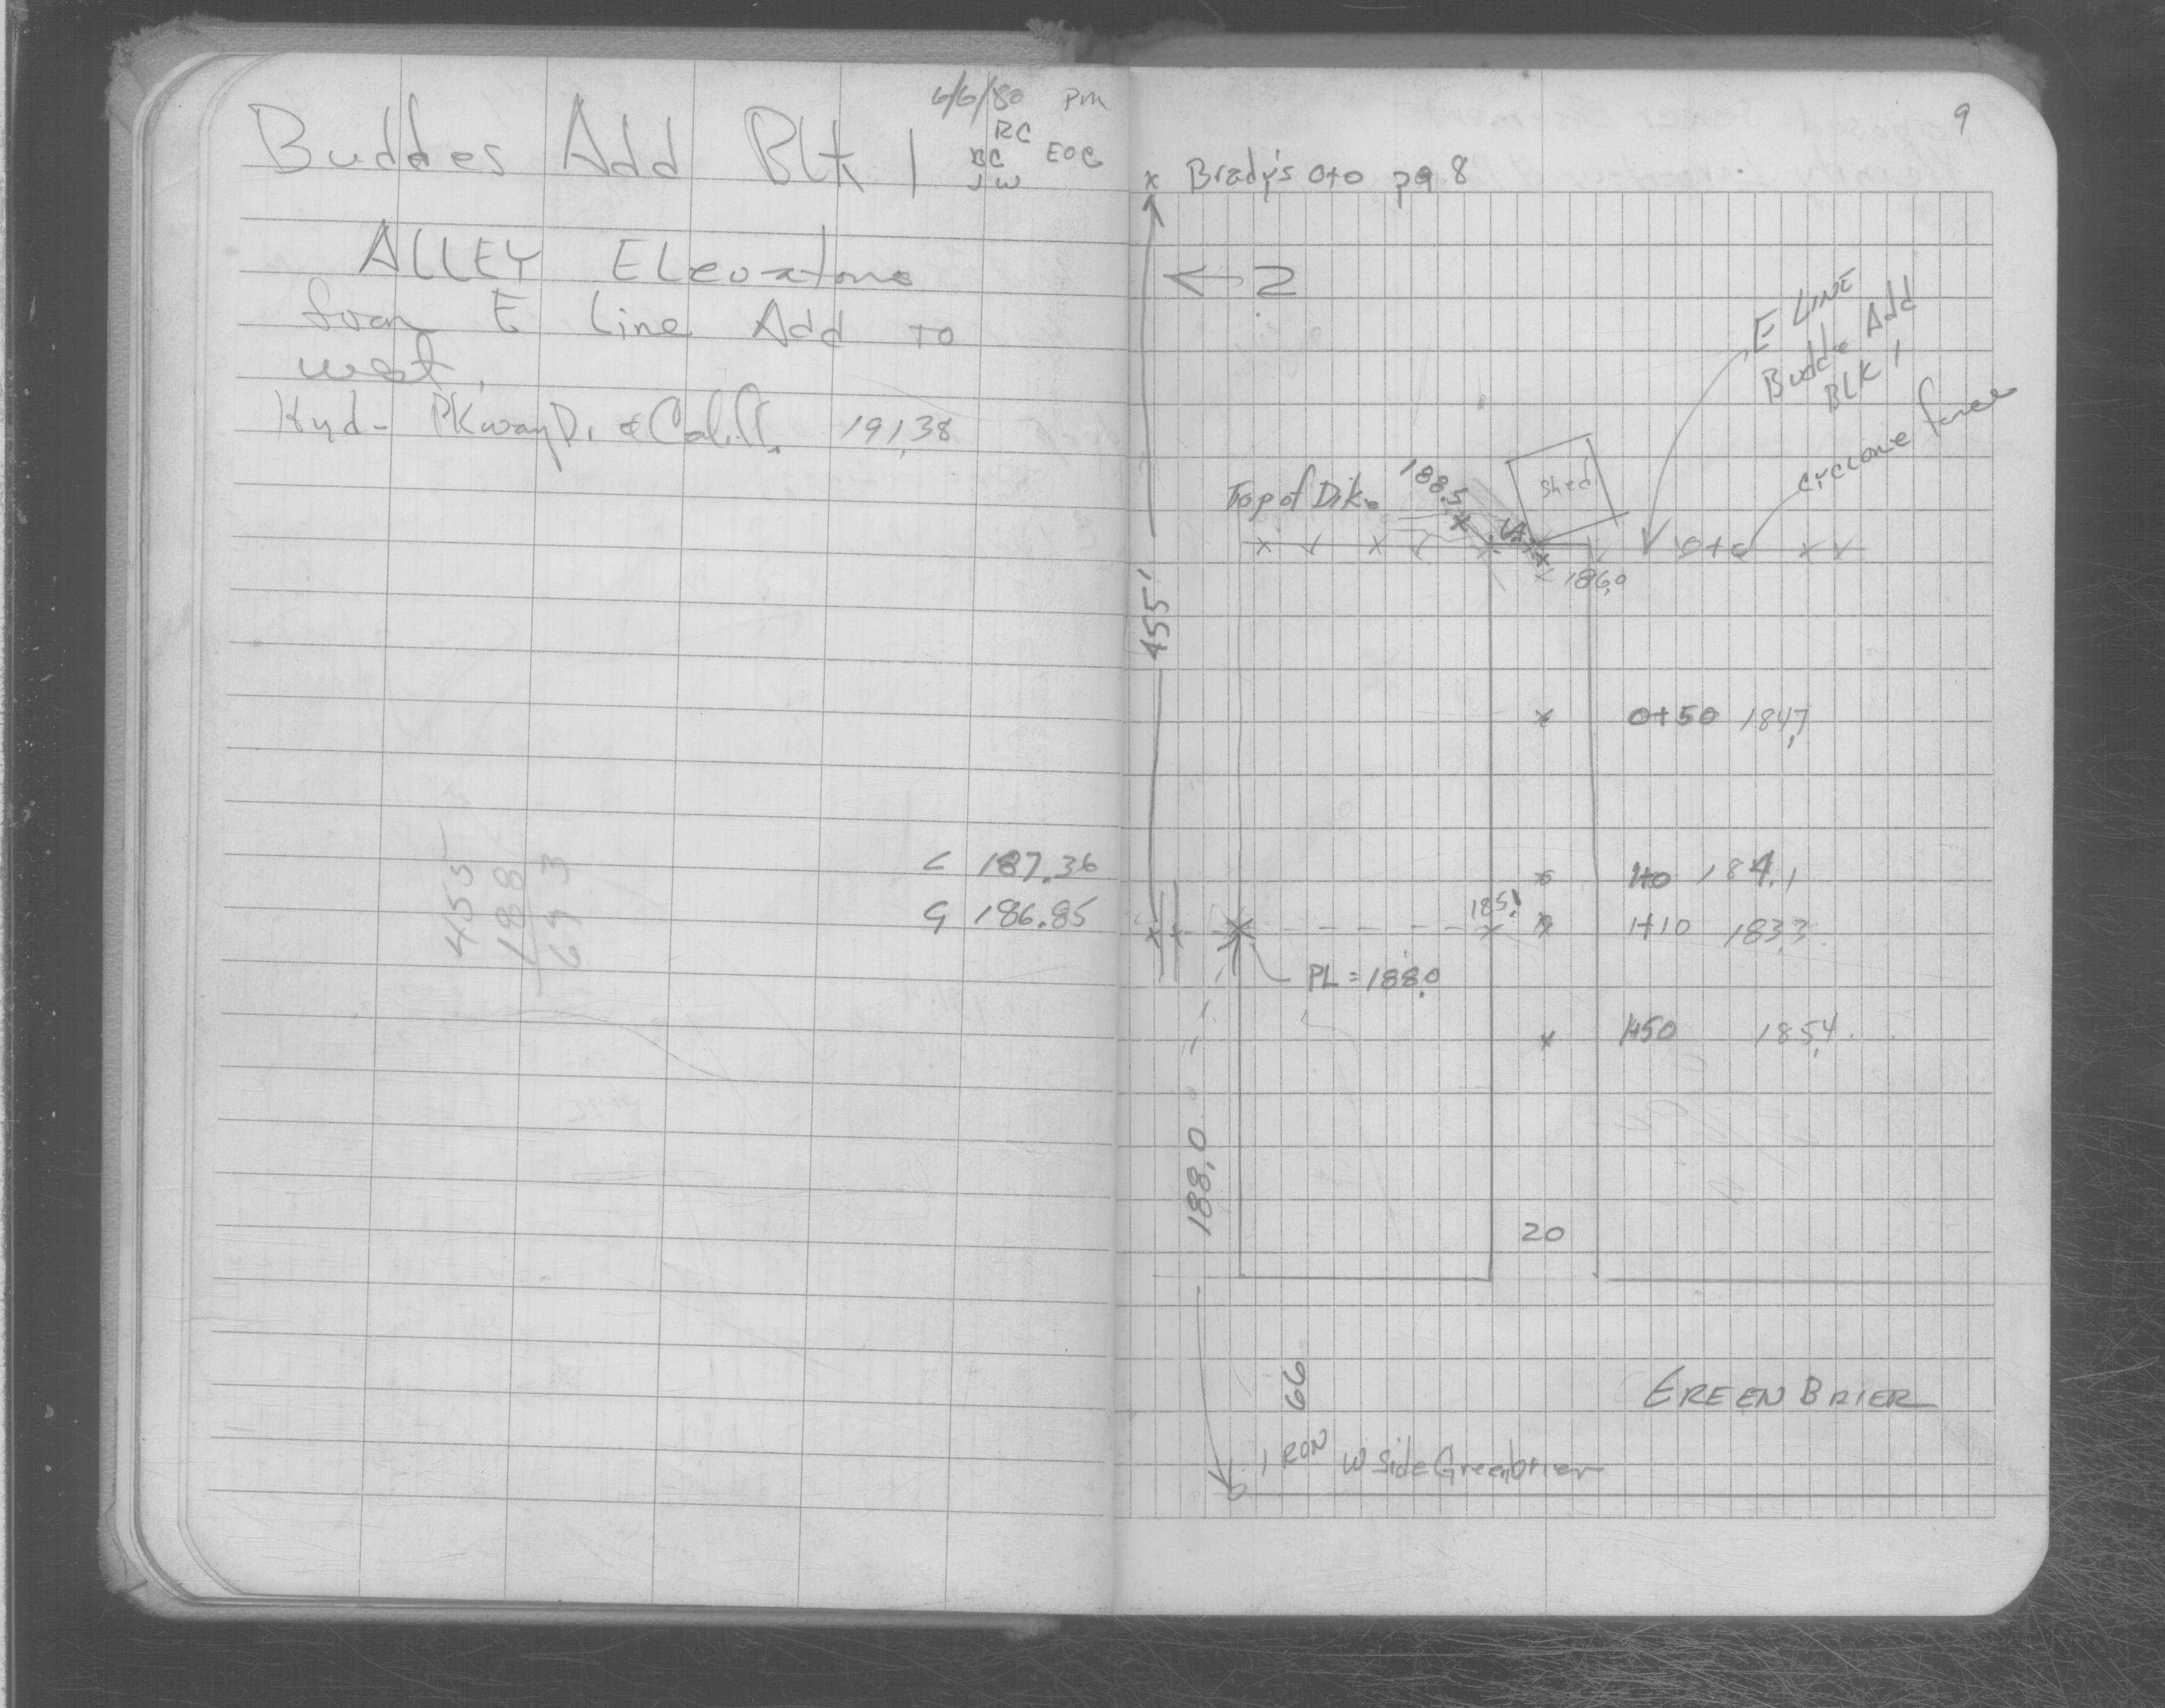 6/6/80 pm
Buddes Add Blk 1
RC
BC EOG
JW
ALLEY Elevations
from E Line Add to
west.
Hyd - PKway Dr & Calif. 191.38
187.36
G 186.85
455
188
643
9
x Brady's 0+0 pg 8
E LINE
Budde Add
BLK 1
cyclone fence
Top of Dike
188.5
shed
0+0
186.0
455'
0+50 184.7
1+0 184.1
185.1
1+10 183.3
PL = 188.0
1+50 185.4
188.0
20
66
GREENBRIER
IRON W Side Greenbrier